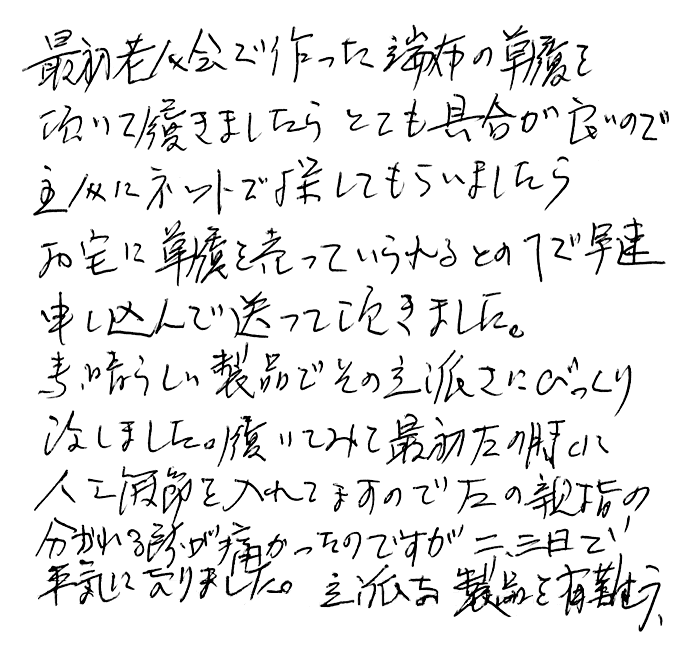 最初老人会で作った端布の草履を
頂いて履きましたらとても具合が良いので
主人にネットで探してもらいましたら
お宅に草履を売っていられるとの事で早速
申し込んで送って頂きました。
素晴らしい製品でその立派さにびっくり
致しました。履いてみて最初左の膝に
人工関節を入れてますので左の親指の
分かれる所が痛かったのですが二、三日で
平気になりました。立派な製品を有難う、